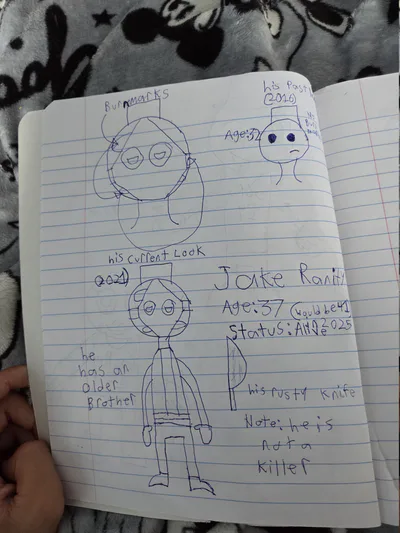 Burnmarks
his Past
(2016)
Age:32
his current Look
(2021)
Jake
Age:37 (would be 41
in 2025
Status: Alive
he
has an
older
Brother
his rusty knife
Note: he is
not a
killer